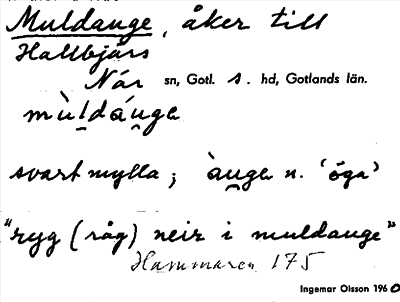 Muldauge, åker till
Hallbjärs
När sn, Gotl. s. hd, Gotlands län.
mù̀ldáuga
svart mylla; àuga n. 'öga'
"ryg (råg) neir i muldauge"
Hammaren 175
Ingemar Olsson 1960